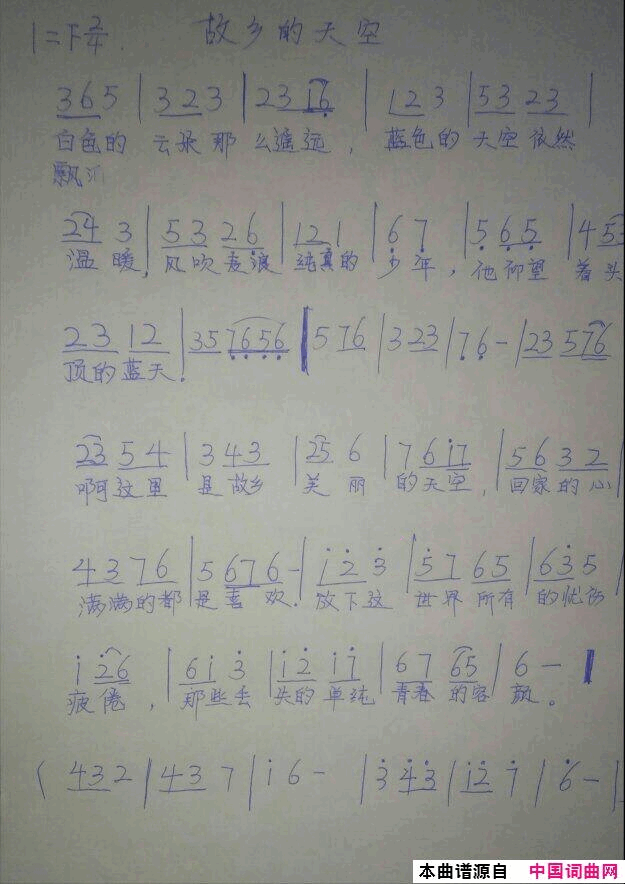 1=F 2/4 故乡的天空
3 6 5 | 3 2 3 | 2 3 1 6 | 1 2 3 | 5 3 2 3 |
白色的 云朵那么遥远，蓝色的天空依然
飘
2 4 3 | 5 3 2 6 | 1 2 1 | 6 7 | 5 6 5 | 4 5 3
温暖，风吹麦浪 纯真的 少年，他仰望 着头
2 3 1 2 | 3 5 7 6 5 6 | 5 7 6 | 3 2 3 | 7 6 - | 2 3 5 7 6
顶的蓝天。
2 3 5 4 | 3 4 3 | 2 5 6 | 7 6 i 7 | 5 6 3 2 |
啊这里 是故乡 美丽 的天空，回家的心
4 3 7 6 | 5 6 7 6 - | i 2 3 | 5 7 6 5 | 6 3 5 |
满满的都是喜欢。放下这 世界所有 的忧伤
i 2 6 | 6 i 3 | i 2 i 7 | 6 7 6 5 | 6 - |
疲倦，那些丢头的单纯 青春的容颜。
( 4 3 2 | 4 3 7 | i 6 - | 3 4 3 | i 2 7 | 6 - |
本曲谱源自 中国词曲网